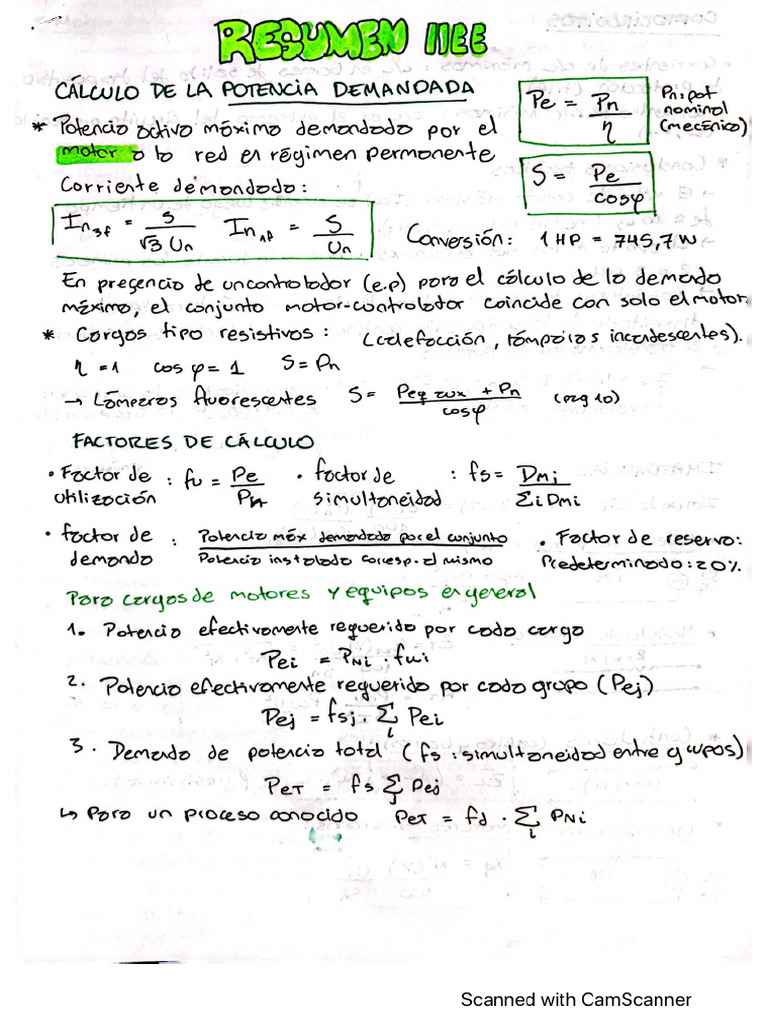 RESUMEN IIEE
CÁLCULO DE LA POTENCIA DEMANDADA
Pe = Pn / η
Pn: pot nominal (mecánica)
* Potencia activa máxima demandada por el
motor a la red en régimen permanente
S = Pe / cosφ
Corriente demandada:
In3f = S / √3 Un    In1f = S / Un
Conversión: 1 HP = 745,7 W
En presencia de un controlador (e.p) para el cálculo de la demada
máxima, el conjunto motor-controlador coincide con solo el motor.
* Cargas tipo resistivas: (calefacción, lámparas incandescentes).
η = 1    cos φ = 1    S = Pn
→ Lámparas fluorescentes    S = (Peq aux + Pn) / cosφ    (pag 10)
FACTORES DE CÁLCULO
• Factor de utilización : fu = Pe / Pn    • factor de simultaneidad : fs = Dmj / Σi Dmi
• factor de demanda : Potencia máx demandada por el conjunto / Potencia instalada corresp. al mismo    • Factor de reserva: Predeterminado: 20%
Para cargas de motores y equipos en general
1. Potencia efectivamente requerida por cada carga
Pei = PNi · fui
2. Potencia efectivamente requerida por cada grupo (Pej)
Pej = fsj · Σi Pei
3. Demanda de potencia total (fs: simultaneidad entre grupos)
PeT = fs Σj Pej
↳ Para un proceso conocido    PeT = fd · Σi PNi
Scanned with CamScanner